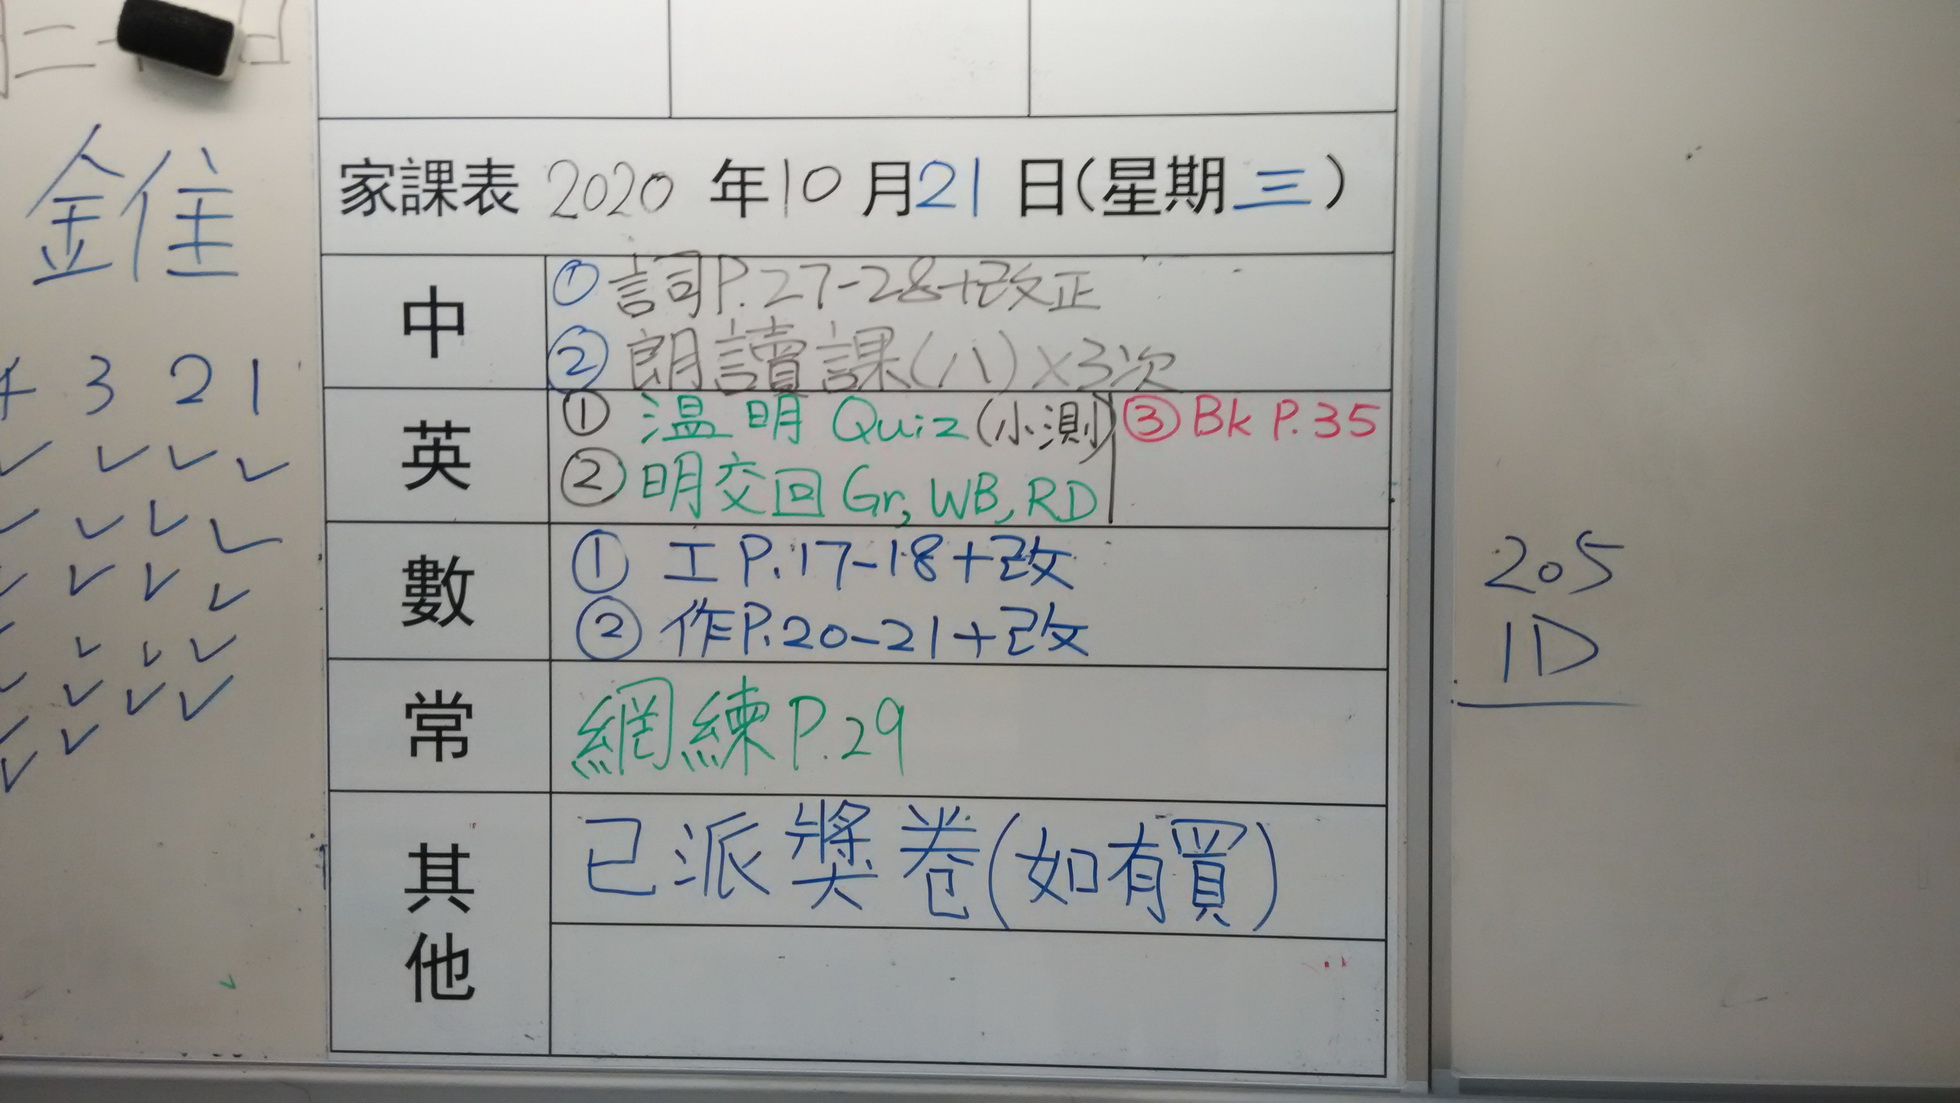 家課表 2020 年 10 月 21 日(星期三)
中
① 詞P.27-28+改正
② 朗讀課(八)×3次
英
① 温明 Quiz(小測)
② 明交回 Gr, WB, RD
③ Bk P.35
數
① 工 P.17-18+改
② 作P.20-21+改
常
網練P.29
其他
已派獎卷(如有買)
4 3 2 1
205
1D